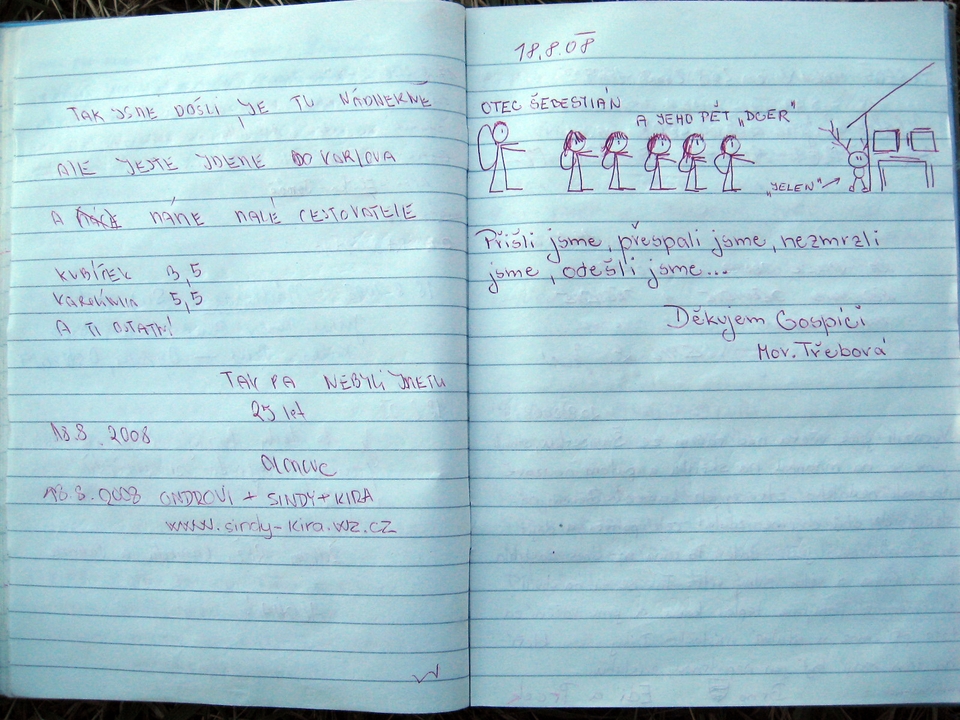 TAK JSME DOŠLI JE TU NÁDHERNĚ
ALE JEŠTE JDEME DO KARLOVA
A MÁME MALÉ CESTOVATELE
KUBÍNEK 3,5
KAROLÍNKA 5,5
A TI OSTATNÍ
TAK PA NEBYLI JSME TU
25 let
18.8.2008
OLOMOUC
18.8.2008 ONDROVI + SINDY + KIRA
www.sindy-kira.wz.cz
18.8.08
OTEC ŠEBESTIÁN
A JEHO PĚT „DCER"
„JELEN"
Přišli jsme, přespali jsme, nezmrzli
jsme, odešli jsme...
Děkujem Gospíci
Mor. Třebová